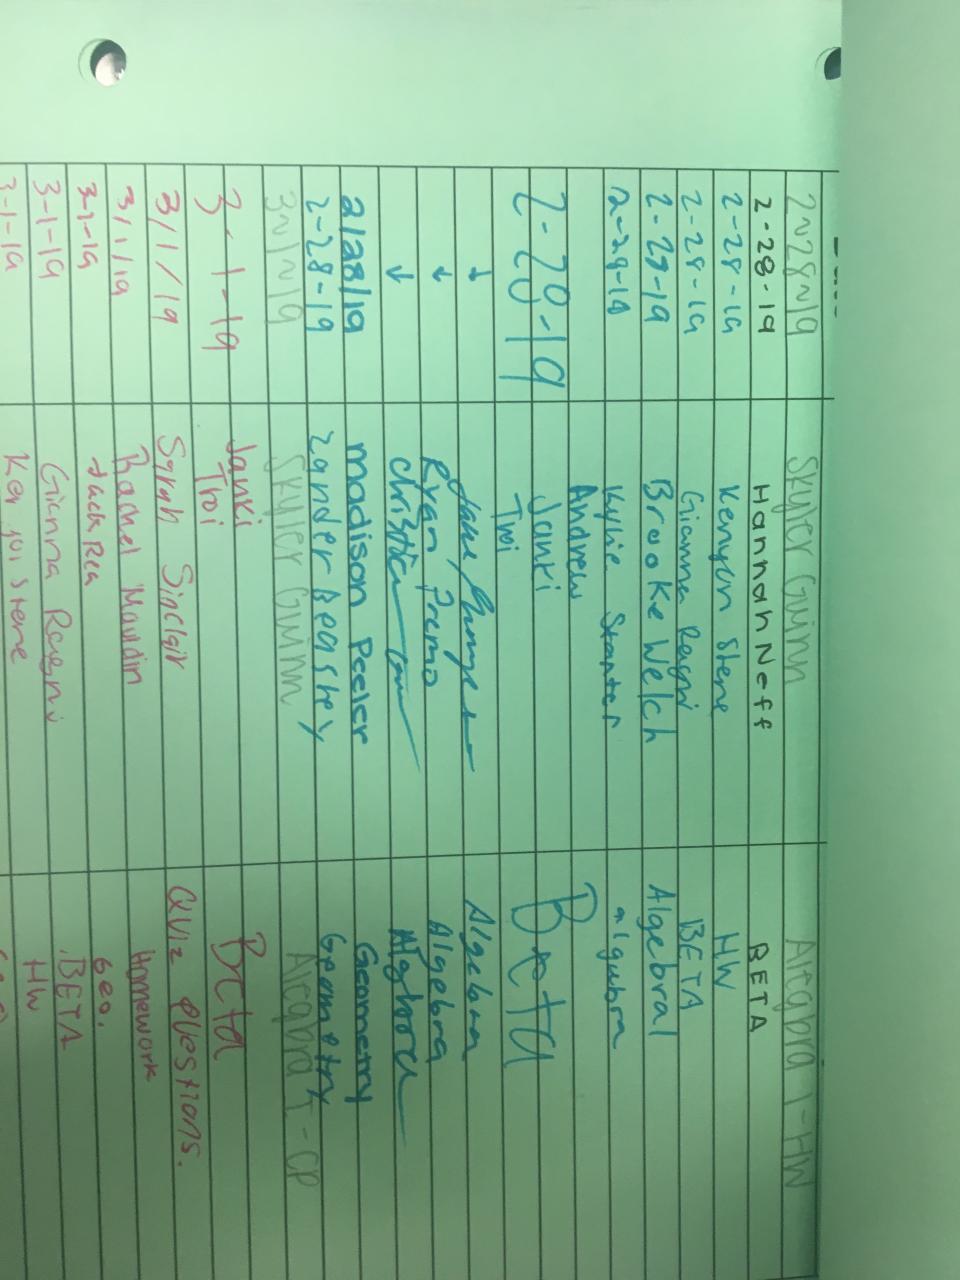 2-28-19 Skyler Guinn Algebra 1-HW
2-28-19 Hannah Neff BETA
2-28-19 Kenyon Stene HW
2-28-19 Gianna Reagni BETA
2-28-19 Brooke Welch Algebra1
2-29-19 Kylie algubra
Andrew
2-28-19 Janki Beta
Troi
↓ Algebra
↓ Ryan Primo Algebra
↓ Algebra
2/28/19 madison Peeler Geometry
2-28-19 zander Beashey Geometry
3-1-19 Skyler Guinn Algebra 1-CP
3-1-19 Janki Beta
Troi
3/1/19 Syrah Sinclair Quiz questions.
3/1/19 Rachel Mauldin Homework
3-1-19 Jack Rea Geo.
3-1-19 Gianna Reagni BETA
3-1-19 Stene HW